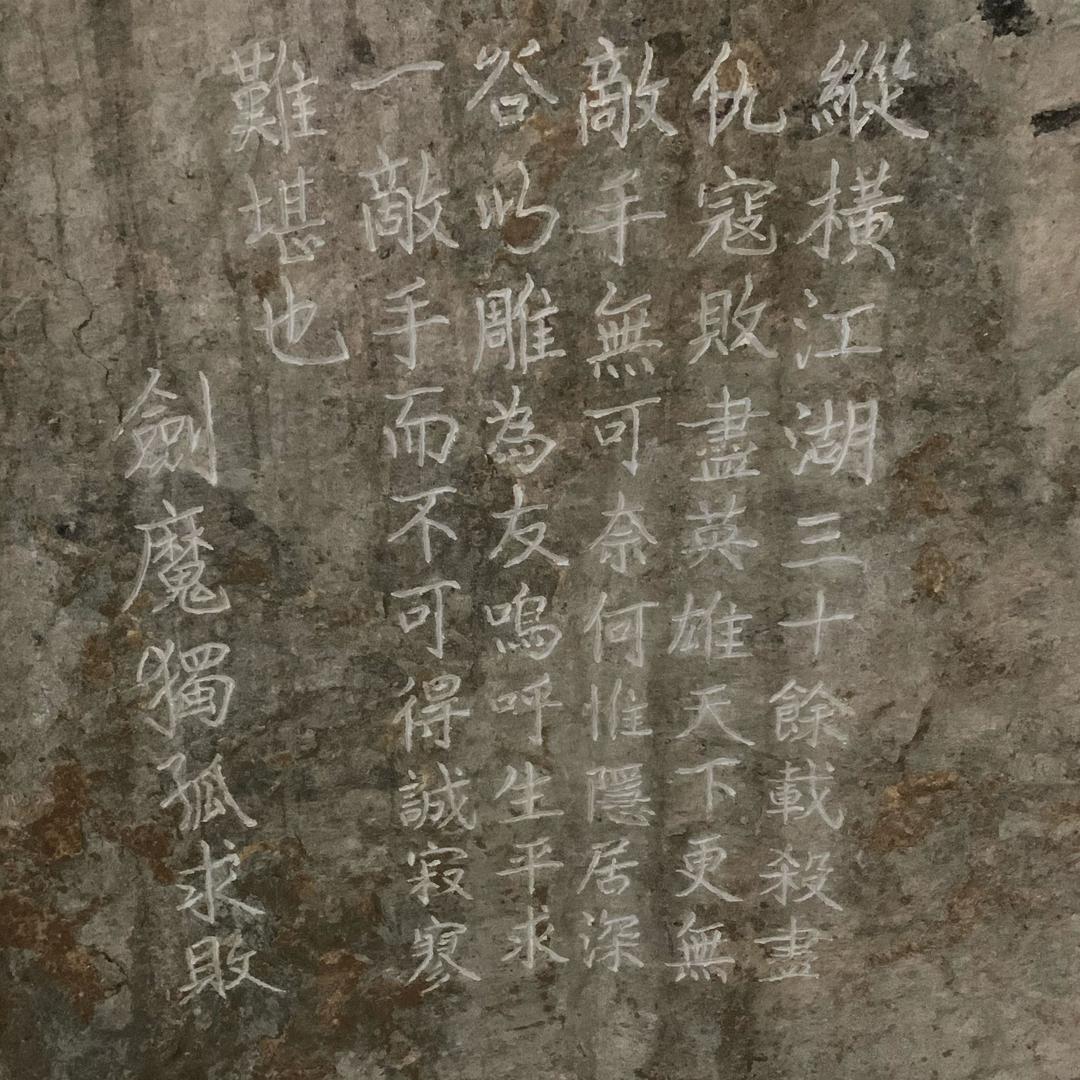 縱橫江湖三十餘載殺盡
仇寇敗盡英雄天下更無
敵手無可奈何惟隱居深
谷以雕為友嗚呼生平求
一敵手而不可得誠寂寥
難堪也
劍魔獨孤求敗